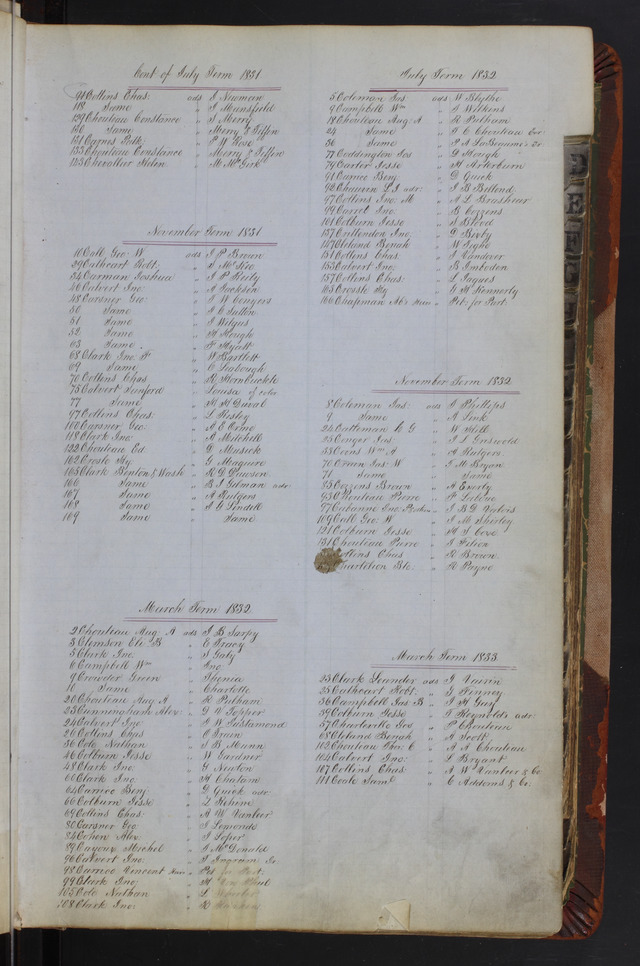 Cont of July Term 1831
94 Collins Chas. ads J Newman
118 Same " J Mansfield
129 Chouteau Constance " S Merry
130 Same " Merry & Giffin
131 Carnes Polk " P W Rose
133 Chouteau Constance " Merry & Giffin
153 Chevallier Helen " M McGirk
November Term 1831
10 Call Geo: W ads J P Brown
29 Cathcart Robt.
34 Carman Joshua
46 Calvert Jno: " A Jackson
48 Carsner Geo: " J W Conyers
50 Same " J C Sutton
51 Same " J Wilgus
52 Same " H Hough
63 Same " F Hyatt
68 Clark Jno: " W Bartlett
69 Same
70 Collins Chas " R Hornbuckle
75 Calvert Sanford " Louisa of color
77 Same " H H Duval
97 Collins Chas: " L Risley
100 Carsner Geo: " A E Orme
118 Clark Jno: " A Mitchell
122 Chouteau Ed " D Musick
162 Creole My " G Maguire
165 Clark Benton & Wash " R D Dawson
166 Same " B J Gilman adr
167 Same " A Rutgers
168 Same " J G Lindell
169 Same " Same
March Term 1832
2 Chouteau Aug: A ads J B Sarpy
3 Clemson Eli: B " E Tracy
5 Clark Jno: " S Gaty
6 Campbell Wm " Jno
9 Crowder Green
10 Same " Charlotte
20 Chouteau Aug A " R Pulham
23 Cunningham Alex: " G A Tepper
24 Calvert Jno " P W
26 Collins Chas
36 Cole Nathan " S B Munn
46 Colburn Jesse " W Gardner
48 Clark Jno: " G Newton
60 Clark Jno: " H Chatam
64 Carrico Benj " D Quick adr
66 Colburn Jesse
69 Collins Chas: " A W Vanlier
80 Carsner Geo " J Lemonds
84 Cohon Alex " J Loper
89 Cayoux Michel " J McDonald
96 Calvert Jno: " J Ingram
98 Carrico Vincent Heirs " Pet for Part:
99 Clark Jno: " H Paul
105 Cole Nathan " L
108 Clark Jno: " R
July Term 1832
5 Coleman Jas ads W Blythe
9 Campbell Wm " A Wilkins
18 Chouteau Aug: A " R Pulham
24 Same " G C Chouteau
36 Same
77 Coddington Jos " D Hough
79 Carter Jesse " H Arterburn
91 Carrico Benj: " D Quick
96 Chauvin L J adr: " J B Belland
97 Collins Jno: M " A L Brashear
99 Carrol Jno: " B Cozzens
101 Colburn Jesse " S Blood
137 Crittendon Jno: " D Busby
147 Cleland Benah " W Tighe
151 Collins Chas. " J Vandever
153 Calvert Jno: " B Embodon
157 Collins Chas: " L Jaques
163 Crossle Hy " G H Kennerly
166 Chapman Abr Heirs " Pet: for Part:
November Term 1832
8 Coleman Jas: ads S Phillips
9 Same " A Link
24 Cattiman L G " W Still
25 Conger Jas: " J L Griswold
53 Coons Wm A " A Rutgers
70 Crown Jas: W " J M Bryan
71 Same " Same
85 Cozzens Brown " A Everly
95 Chouteau Pierre " F Labeau
97 Cabanne Jno: P " J B D Valois
109 Call Geo: W " J M Shirley
121 Colburn Jesse " H S Coxe
131 Chouteau Pierre " J Filion
Collins Chas " R Brown
Charleton " R Payne
March Term 1833
23 Clark Leander ads J Vairin
25 Cathcart Robt. " G Kinney
36 Campbell Jas B " J H Gay
39 Colburn Jesse " J Reynolds adr:
57 Charleville Geo " P Chouteau
68 Cleland Benah " A Scott
103 Chouteau Abr: C " A A Chouteau
104 Calvert Jno: " L Bryant
107 Collins Chas. " A W Vanlier & Co
111 Coale Saml. " C Addoms & Co:
D
E
F
G